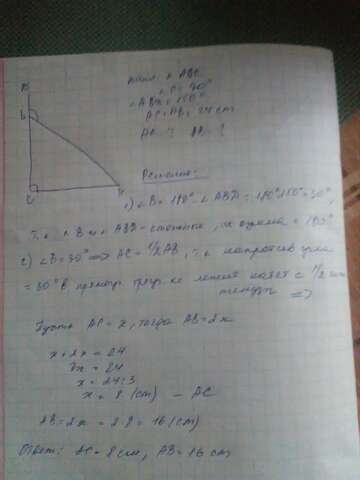 D
B
C
A
∠C = 90°
∠ABD = 150°
AC + AB = 24 cm
AC - ? AB - ?
Решение:
1) ∠B = 180° - ∠ABD = 180° - 150° = 30°,
т.к. ∠B и ∠ABD - смежные, их сумма = 180°
2) ∠B = 30° => AC = 1/2 AB, т.к. напротив угла
= 30° в прямоуг. треуг. лежит катет = 1/2
=>
Пусть AC = x, тогда AB = 2x
x + 2x = 24
3x = 24
x = 24:3
x = 8 (cm) - AC
AB = 2x = 2·8 = 16 (cm)
Ответ: AC = 8 см, AB = 16 cm